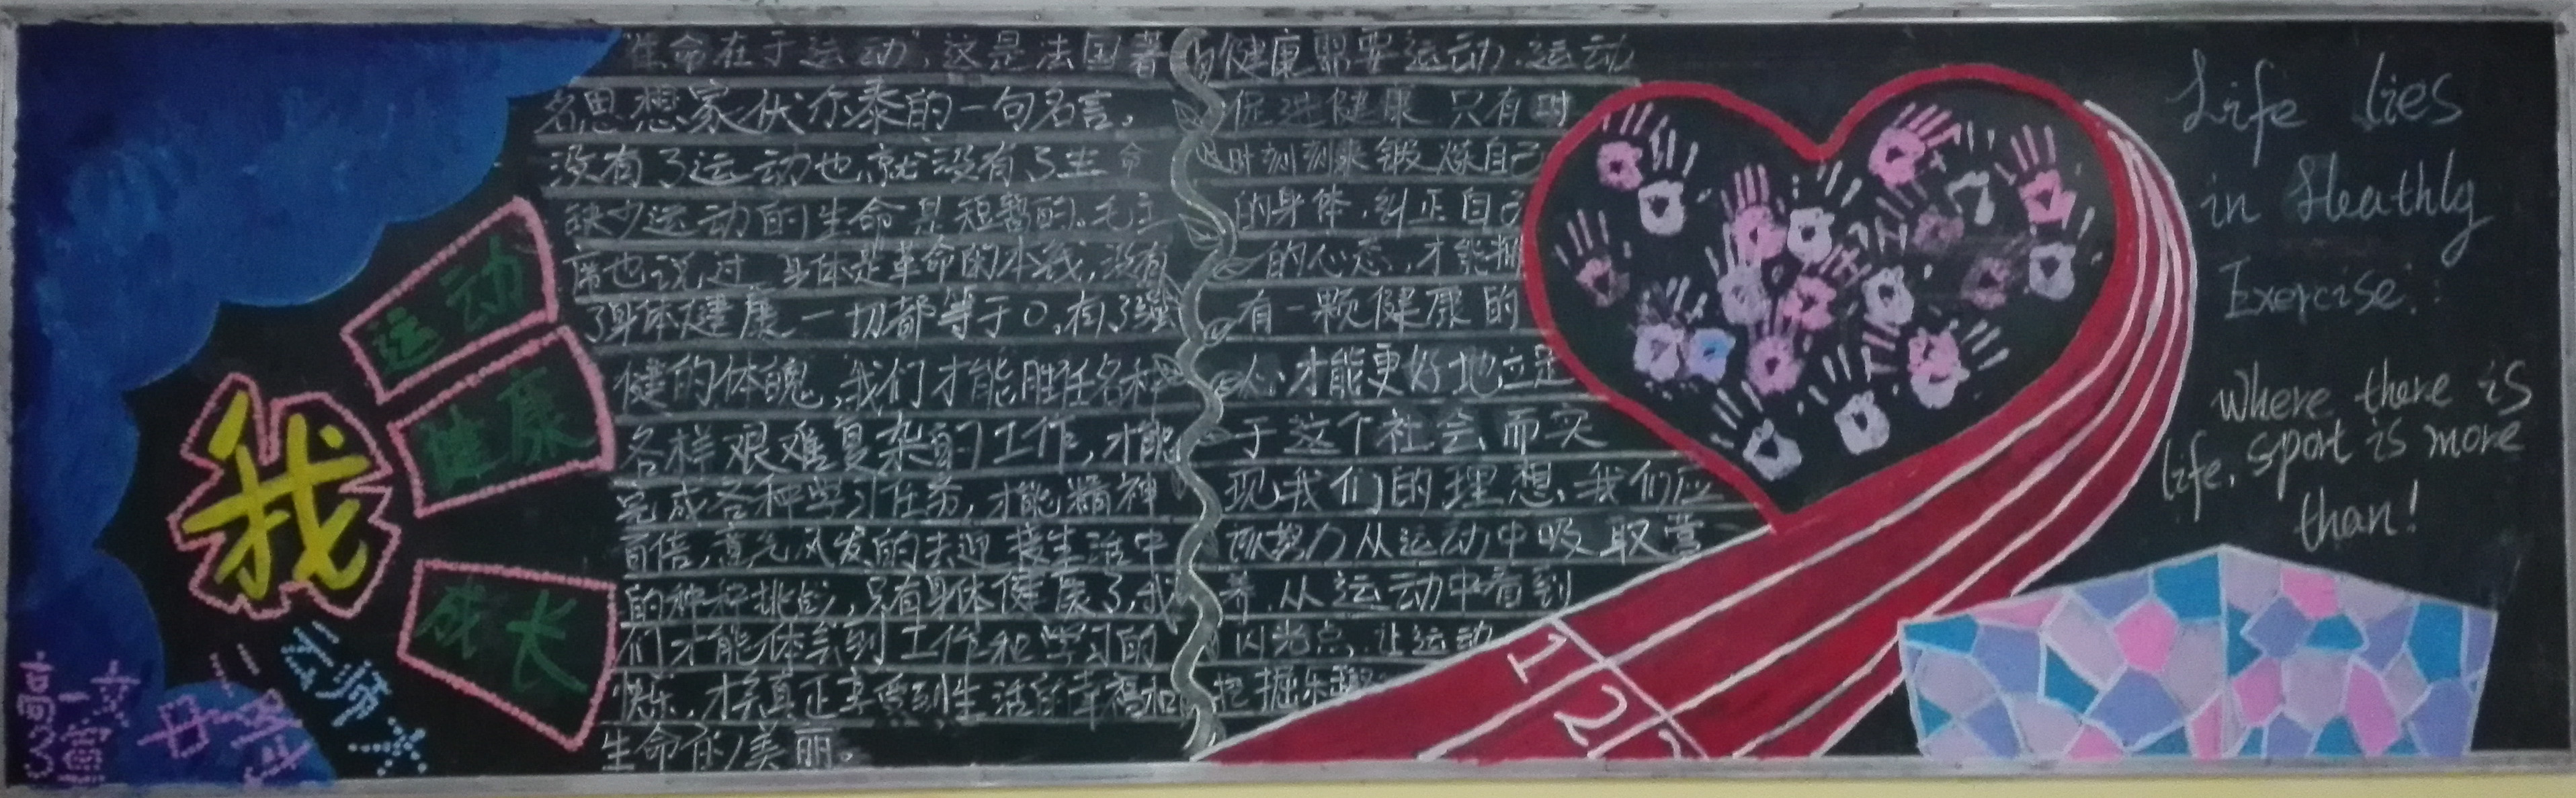 运动
健康
我
成长
"生命在于运动",这是法国著
名思想家伏尔泰的一句名言,
没有了运动也就没有了生命
缺少运动的生命是短暂的。毛主
席也说过,身体是革命的本钱,没有
了身体健康,一切都等于0,有了强
健的体魄,我们才能胜任各种
各样艰难复杂的工作,才能
完成各种学习任务,才能精神
百倍,意气风发的去迎接生活中
的种种挑战,只有身体健康了,我
们才能体会到工作和学习的
快乐,才会真正享受到生活的幸福和
生命的美丽。
健康需要运动,运动
促进健康 只有时
时刻刻来锻炼自己
的身体,纠正自己
的心态,才能拥
有一颗健康的
心,才能更好地立足
于这个社会而实
现我们的理想,我们应
该努力从运动中吸取营
养,从运动中看到
闪光点,让运动
挖掘乐趣
1
2
Life lies
in Heathly
Exercise.
Where there is
life, sport is more
than!